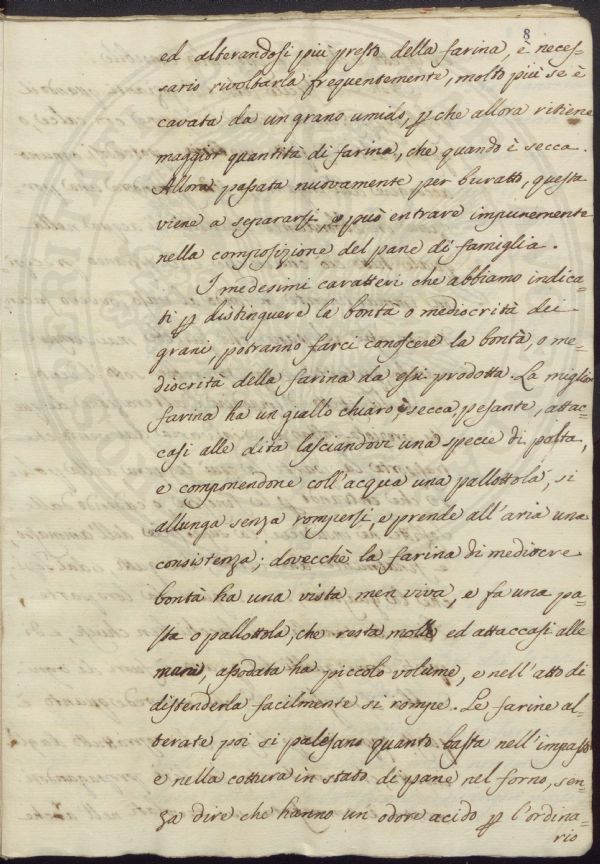 8
ed alterandosi più presto della farina, è neces-
sario rivoltarla frequentemente, molto più se è
cavata da un grano umido, p che allora ritiene
maggior quantità di farina, che quando è secca.
Allora passata nuovamente per buratto, questa
viene a separarsi, e può entrare impunemente
nella composizione del pane di famiglia.
I medesimi caratteri che abbiamo indica-
ti p distinguere la bontà o mediocrità dei
grani, potranno farci conoscere la bontà, o me-
diocrità della farina da essi prodotta. La miglior
farina ha un giallo chiaro, è secca, pesante, attac-
casi alle dita lasciandovi una specie di pasta,
e componendone coll'acqua una pallottola, si
allunga senza rompersi, e prende all'aria una
consistenza; dovecchè la farina di mediocre
bontà ha una vista men viva, e fa una pa-
sta o pallottola, che resta molle ed attaccasi alle
mani, assodata ha piccolo volume, e nell'atto di
distenderla facilmente si rompe. Le farine al-
terate poi si palesano quanto basta nell'impasto
e nella cottura in stato di pane nel forno, sen-
za dire che hanno un odore acido p l'ordina-
rio